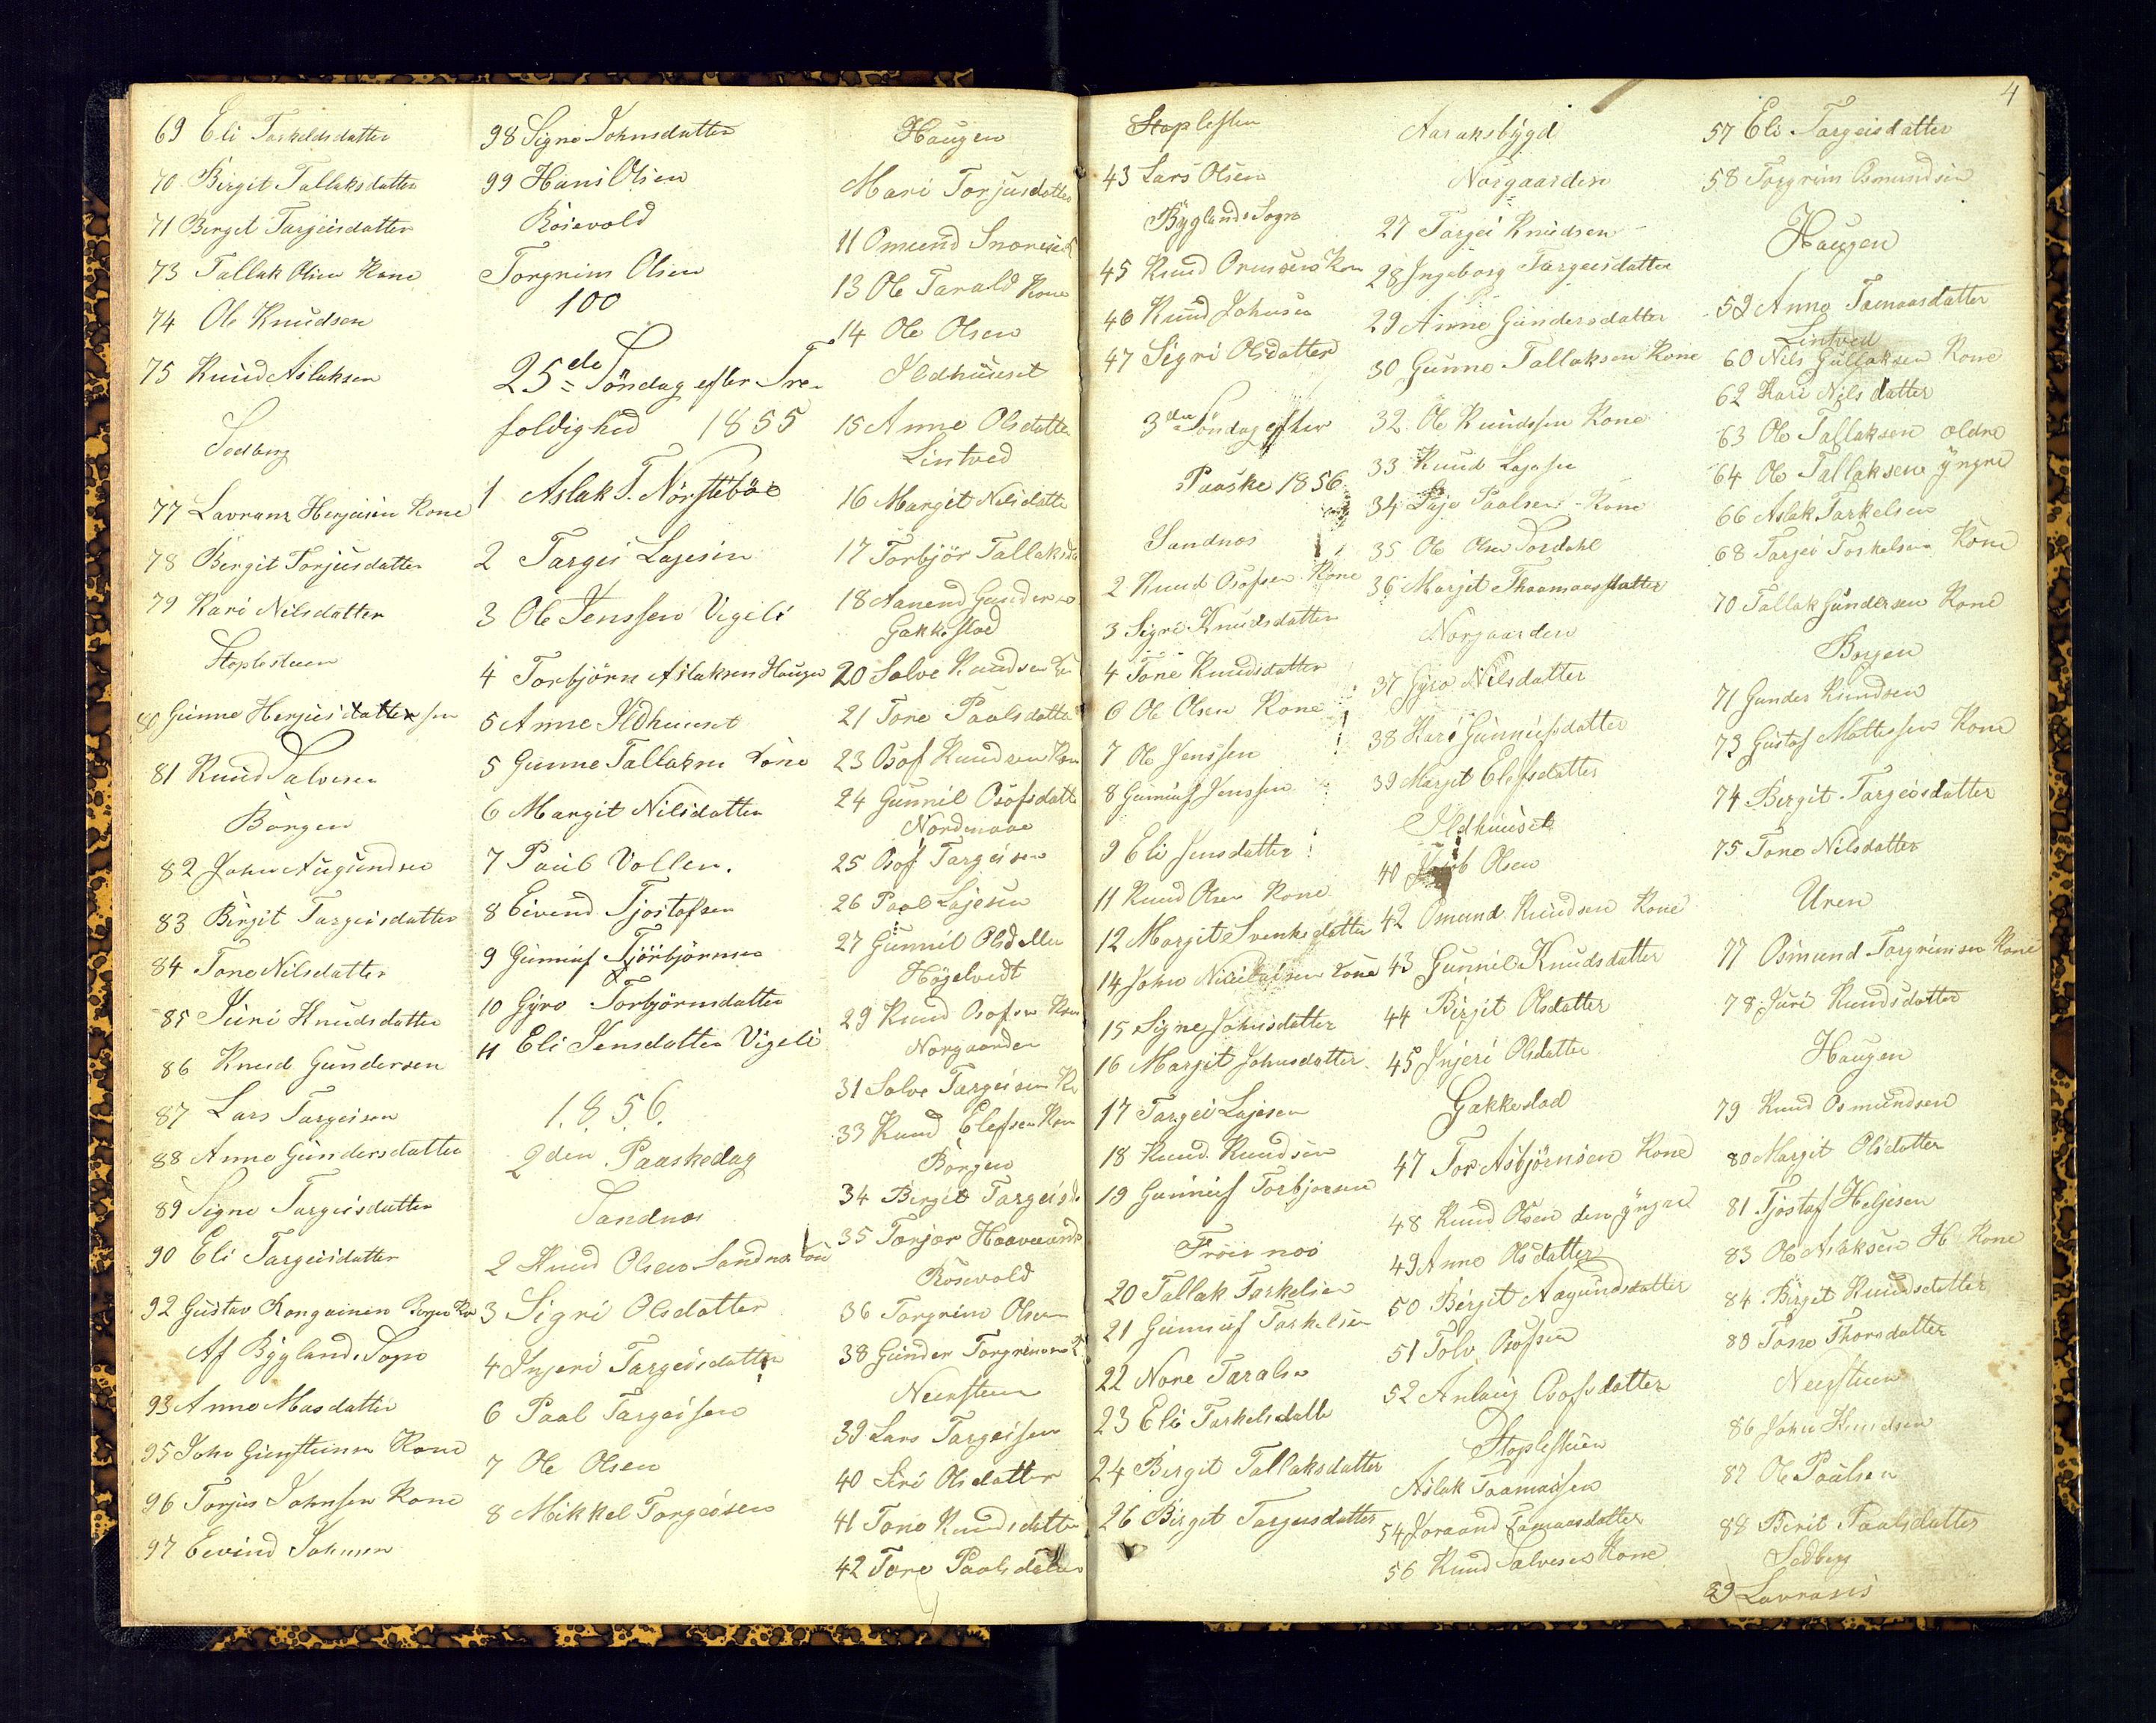 69 Eli Tarkeldsdatter
70 Birgit Tallaksdatter
71 Birgit Targeisdatter
73 Tallak Olsen Kone
74 Ole Knudsen
75 Knud Aslaksen
Sedberg
77 Lavrans Herjusen Kone
78 Birgit Torjusdatter
79 Kari Nilsdatter
Stoplesteen
80 Gunne Herjusdatter sen
81 Knud Salvesen
Borgen
82 John Augundsen
83 Birgit Targeisdatter
84 Tone Nilsdatter
85 Jüri Knudsdatter
86 Knud Gundersen
87 Lars Targeisen
88 Anne Gundersdatter
89 Signe Targeisdatter
90 Eli Targeisdatter
92 Gustav Borgen
Af Byglands Sogn
93 Anne Masdatter
95 John Gunsteinsen Kone
96 Torjus Johnsen Kone
97 Eivind Johnsen
98 Signe Johnsdatter
99 Hans Olsen
Rosevold
Torgrim Olsen
100
25de Söndag efter Tre-
foldighed 1855
1 Aslak T. Nörstebøe
2 Targei Lajesen
3 Ole Jenssen Vigeli
4 Torbjörn Aslaksen Haugen
5 Anne Ildhuuset
5 Gunne Tallaksen Kone
6 Margit Nilsdatter
7 Paul Vollen.
8 Eivend Tjostofsen
9 Gunnuf Tjörbjörnsen
10 Gyro Torbjörnsdatter
11 Eli Jensdatter Vigeli
1856.
2den Paaskedag
Sandnes
2 Knud Olsen Sandnes Kone
3 Sigri Olsdatter
4 Injeri Targeisdatter
6 Paal Targeisen
7 Ole Olsen
8 Mikkel Torgeisen
Haugen
Mari Torjusdatter
11 Omund
13 Ole Tarald Kone
14 Ole Olsen
Ildhuuset
15 Anne Olsdatter
Lintved
16 Margit Nilsdatte
17 Torbjör Tallaksda
18 Aanend Gunders
Gakkestad
20 Salve Knudsen
21 Tone Paalsdatte
23 Osof Knudsen Kone
24 Gunnil Osofsdatt
Nordenaae
25 Osof Targeisen
26 Paal Lajesen
27 Gunnil Olsdatter
Högelvedt
29 Knud Osofsen Kon
Norgaarden
31 Salve Targeisen Ko
33 Knud Elefsen Kon
Borgen
34 Birgit Targeisd
35 Torjer
Rosevold
36 Torgrim Olsen
38 Gunder Torgrimsen
Neersteen
39 Lars Targeisen
40 Siri Olsdatter
41 Tone Knudsdatter
42 Tore Paalsdatter
4
Stoplesteen
43 Lars Olsen
Byglands Sogn
45 Knud Omunsen Kon
46 Knud Johnsen
47 Sigri Olsdatter
3die Söndag efter
Paaske 1856
Sandnes
2 Knud Osofsen Kone
3 Sigri Knudsdatter
4 Tone Knudsdatter
6 Ole Olsen Kone
7 Ole Jenssen
8 Gunnuf Jenssen
9 Eli Jensdatter
11 Knud Olsen Kone
12 Margit Svenkesdatter
14 John Kone
15 Signe Johnsdatter
16 Margit Johnsdatter
17 Targei Lajesen
18 Knud Knudsen
19 Gunnuf Torbjörnsen
Fröisnes
20 Tallak Tarkelsen
21 Gunnuf Tarkelsen
22 Nore Taralsen
23 Eli Tarkelsdatte
24 Birgit Tallaksdatter
26 Birgit Targeisdatter
Aaraksbygd
Norgaarden
27 Targei Knudsen
28 Ingeborg Targeisdatter
29 Anne Gundersdatter
30 Gunne Tallaksen Kone
32 Ole Knudssen Kone
33 Knud Lajesen
34 Laje Paalsen Kone
35 Ole Olsen Dordahl
36 Margit Thaamaasdatter
Norgaarden
37 Gyro Nilsdatter
38 Kari Gunnufsdatter
39 Margit Elefsdatter
Ildhuuset
40 Olsen
42 Omund Knudsen Kone
43 Gunnil Knudsdatter
44 Birgit Olsdatter
45 Injeri Olsdatter
Gakkestad
47 Tor Asbjörnsen Kone
48 Knud Olsen den yngre
49 Anne Olsdatter
50 Birgit Aagundsdatter
51 Tolv Osofsen
52 Anlaug Osofsdatter
Stoplesteen
Aslak Taamaasen
54 Joraand Tamaasdatter
56 Knud Salvesen Kone
57 Eli Targeisdatter
58 Torgrim Osmundsen
Haugen
59 Anne Tamaasdatter
Lintved
60 Nils Gullaksen Kone
62 Kari Nilsdatter
63 Ole Tallaksen ældre
64 Ole Tallaksen yngre
66 Aslak Tarkelsen
68 Targei Torkelsen Kone
70 Tallak Gundersen Kone
Borgen
71 Gunder Knudsen
73 Gustaf Mattessen Kone
74 Birgit Targeisdatter
75 Tone Nilsdatter
Uren
77 Osmund Torgrimsen Kone
78 Juri Knudsdatter
Haugen
79 Knud Osmundsen
80 Margit Olsdatter
81 Tjostaf Heljesen
83 Ole Aslaksen H Kone
84 Birgit Knudsdatter
80 Tone Thorsdatter
Neersteen
86 John Knudsen
87 Ole Paulsen
88 Birit Paalsdatter
Sedberg
89 Lavrans